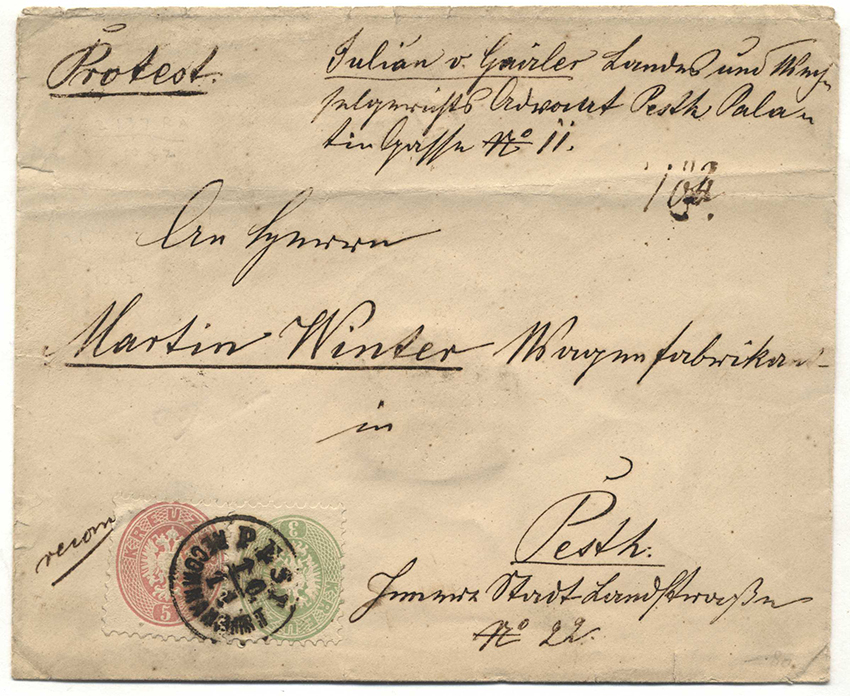 Protest.
Julian v. Gaisler Landes und Wech-
selgerichts Advocat Pesth Pala-
tin Gasse No 11.
An Herrn
Martin Winter Wagenfabrikan
in
recom
Pesth.
Innere Stadt Landstraße
No 22.
KREUZ
5
3
PEST
RECOMMANDIRT